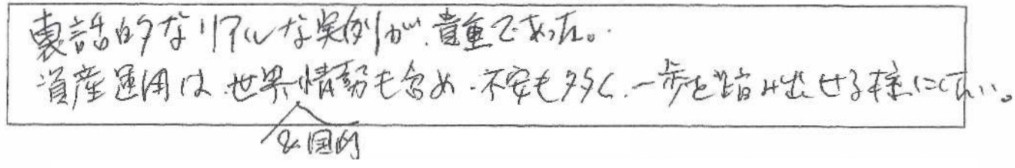 裏話的なリアルな実例が、貴重であった。
資産運用は、世界情勢も含め、不安も多く、一歩を踏み出せる様にしたい。
&国内